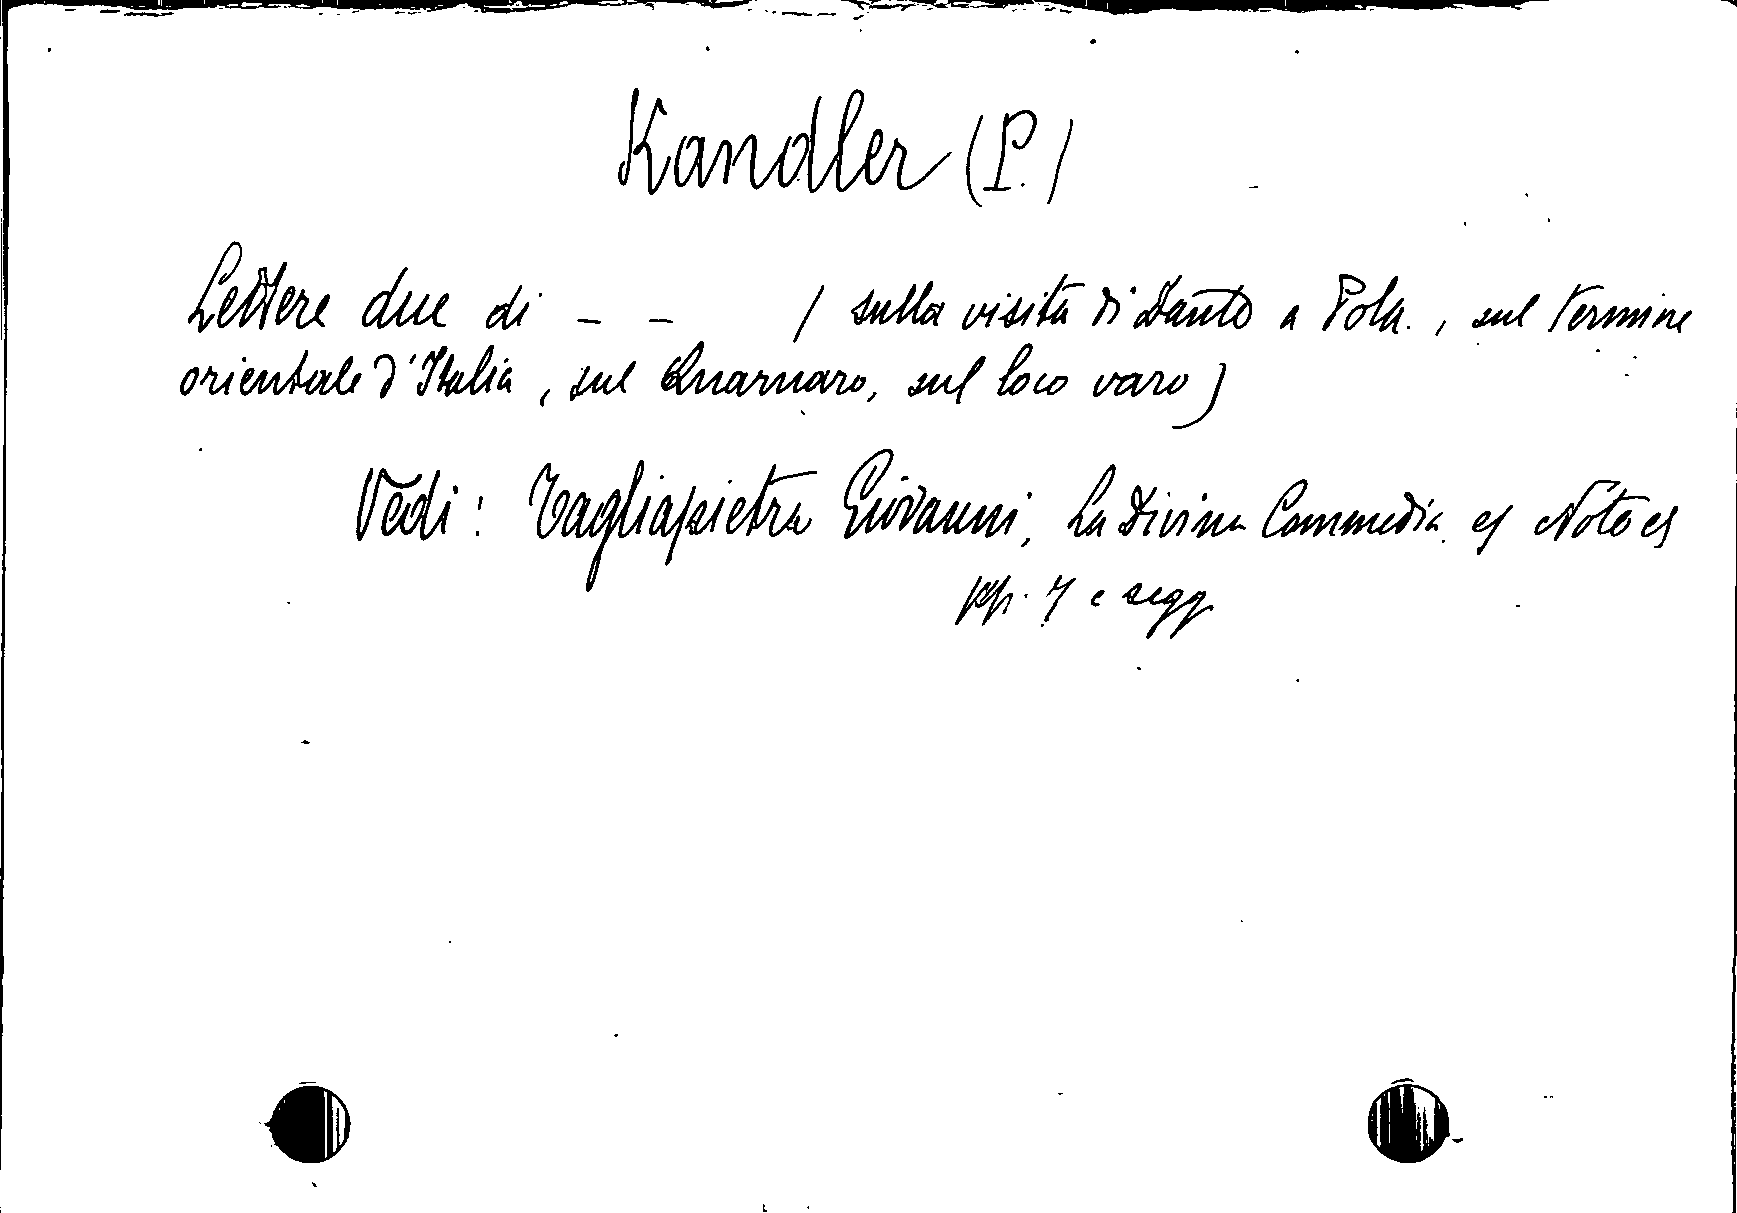 Kandler (P.)
Lettere due di - - (sulla visita di Dante a Pola, sul termine
orientale d'Italia, sul Quarnaro, sul loco varo)
Vedi: Tagliapietra Giovanni, La Divina Commedia Note
pp. 7 e segg.